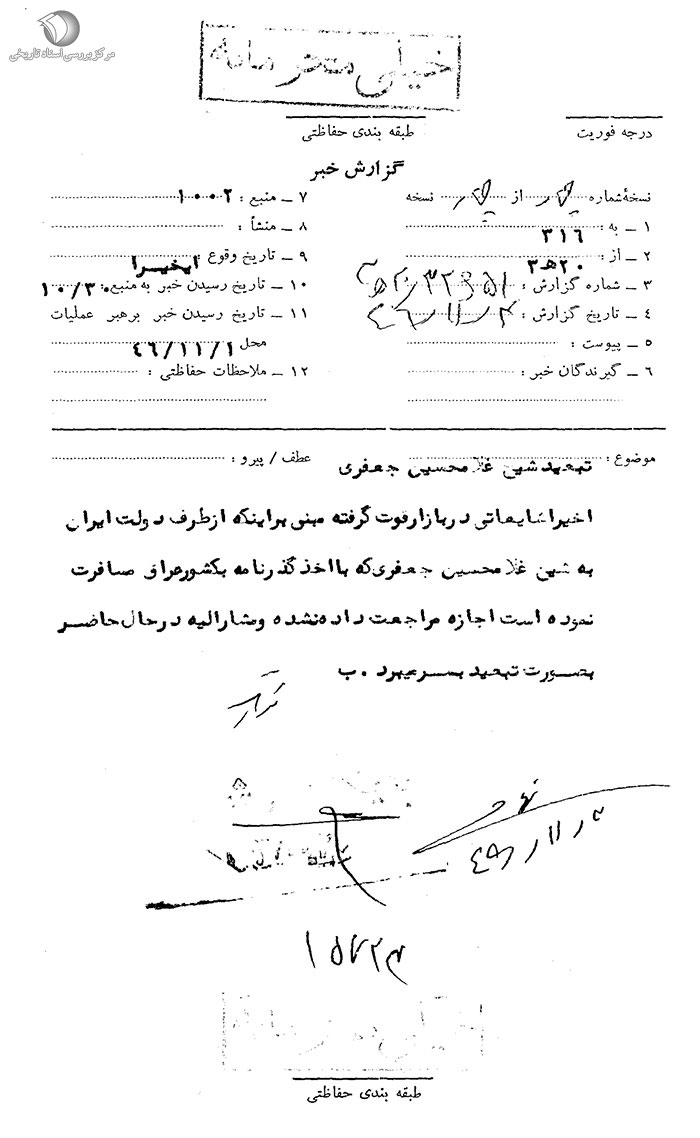 مرکز بررسی اسناد تاریخی
خیلی محرمانه
درجه فوریت
طبقه بندی حفاظتی
گزارش خبر
نسخهٔ شماره از نسخه
۱ ــ به : ۳۱۶
۲ ــ از : ۲۰ هـ ۳
۳ ــ شماره گزارش :
۴ ــ تاریخ گزارش :
۵ ــ پیوست :
۶ ــ گیرندگان خبر :
۷ ــ منبع : ۱۰۰۲
۸ ــ منشأ :
۹ ــ تاریخ وقوع : اخیرا
۱۰ ــ تاریخ رسیدن خبر به منبع : ۱۰/۳۰
۱۱ ــ تاریخ رسیدن خبر برهبر عملیات
محل ۴۶/۱۱/۱
۱۲ ــ ملاحظات حفاظتی :
موضوع : تبعید شیخ غلامحسین جعفری
عطف / پیرو :
اخیرا شایعاتی در بازار قوت گرفته مبنی براینکه ازطرف دولت ایران
به شیخ غلامحسین جعفری که با اخذ گذرنامه بکشور عراق مسافرت
نموده است اجازه مراجعت داده نشده ومشارالیه درحال حاضر
بصورت تبعید بسر میبرد . ب
طبقه بندی حفاظتی